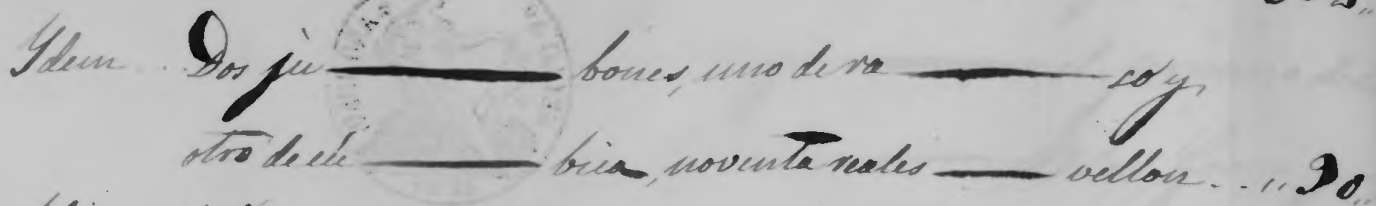 Ydem Dos jú——bones, uno de ra——so y,
otro de cú——bica, noventa reales——vellon...,,90,,